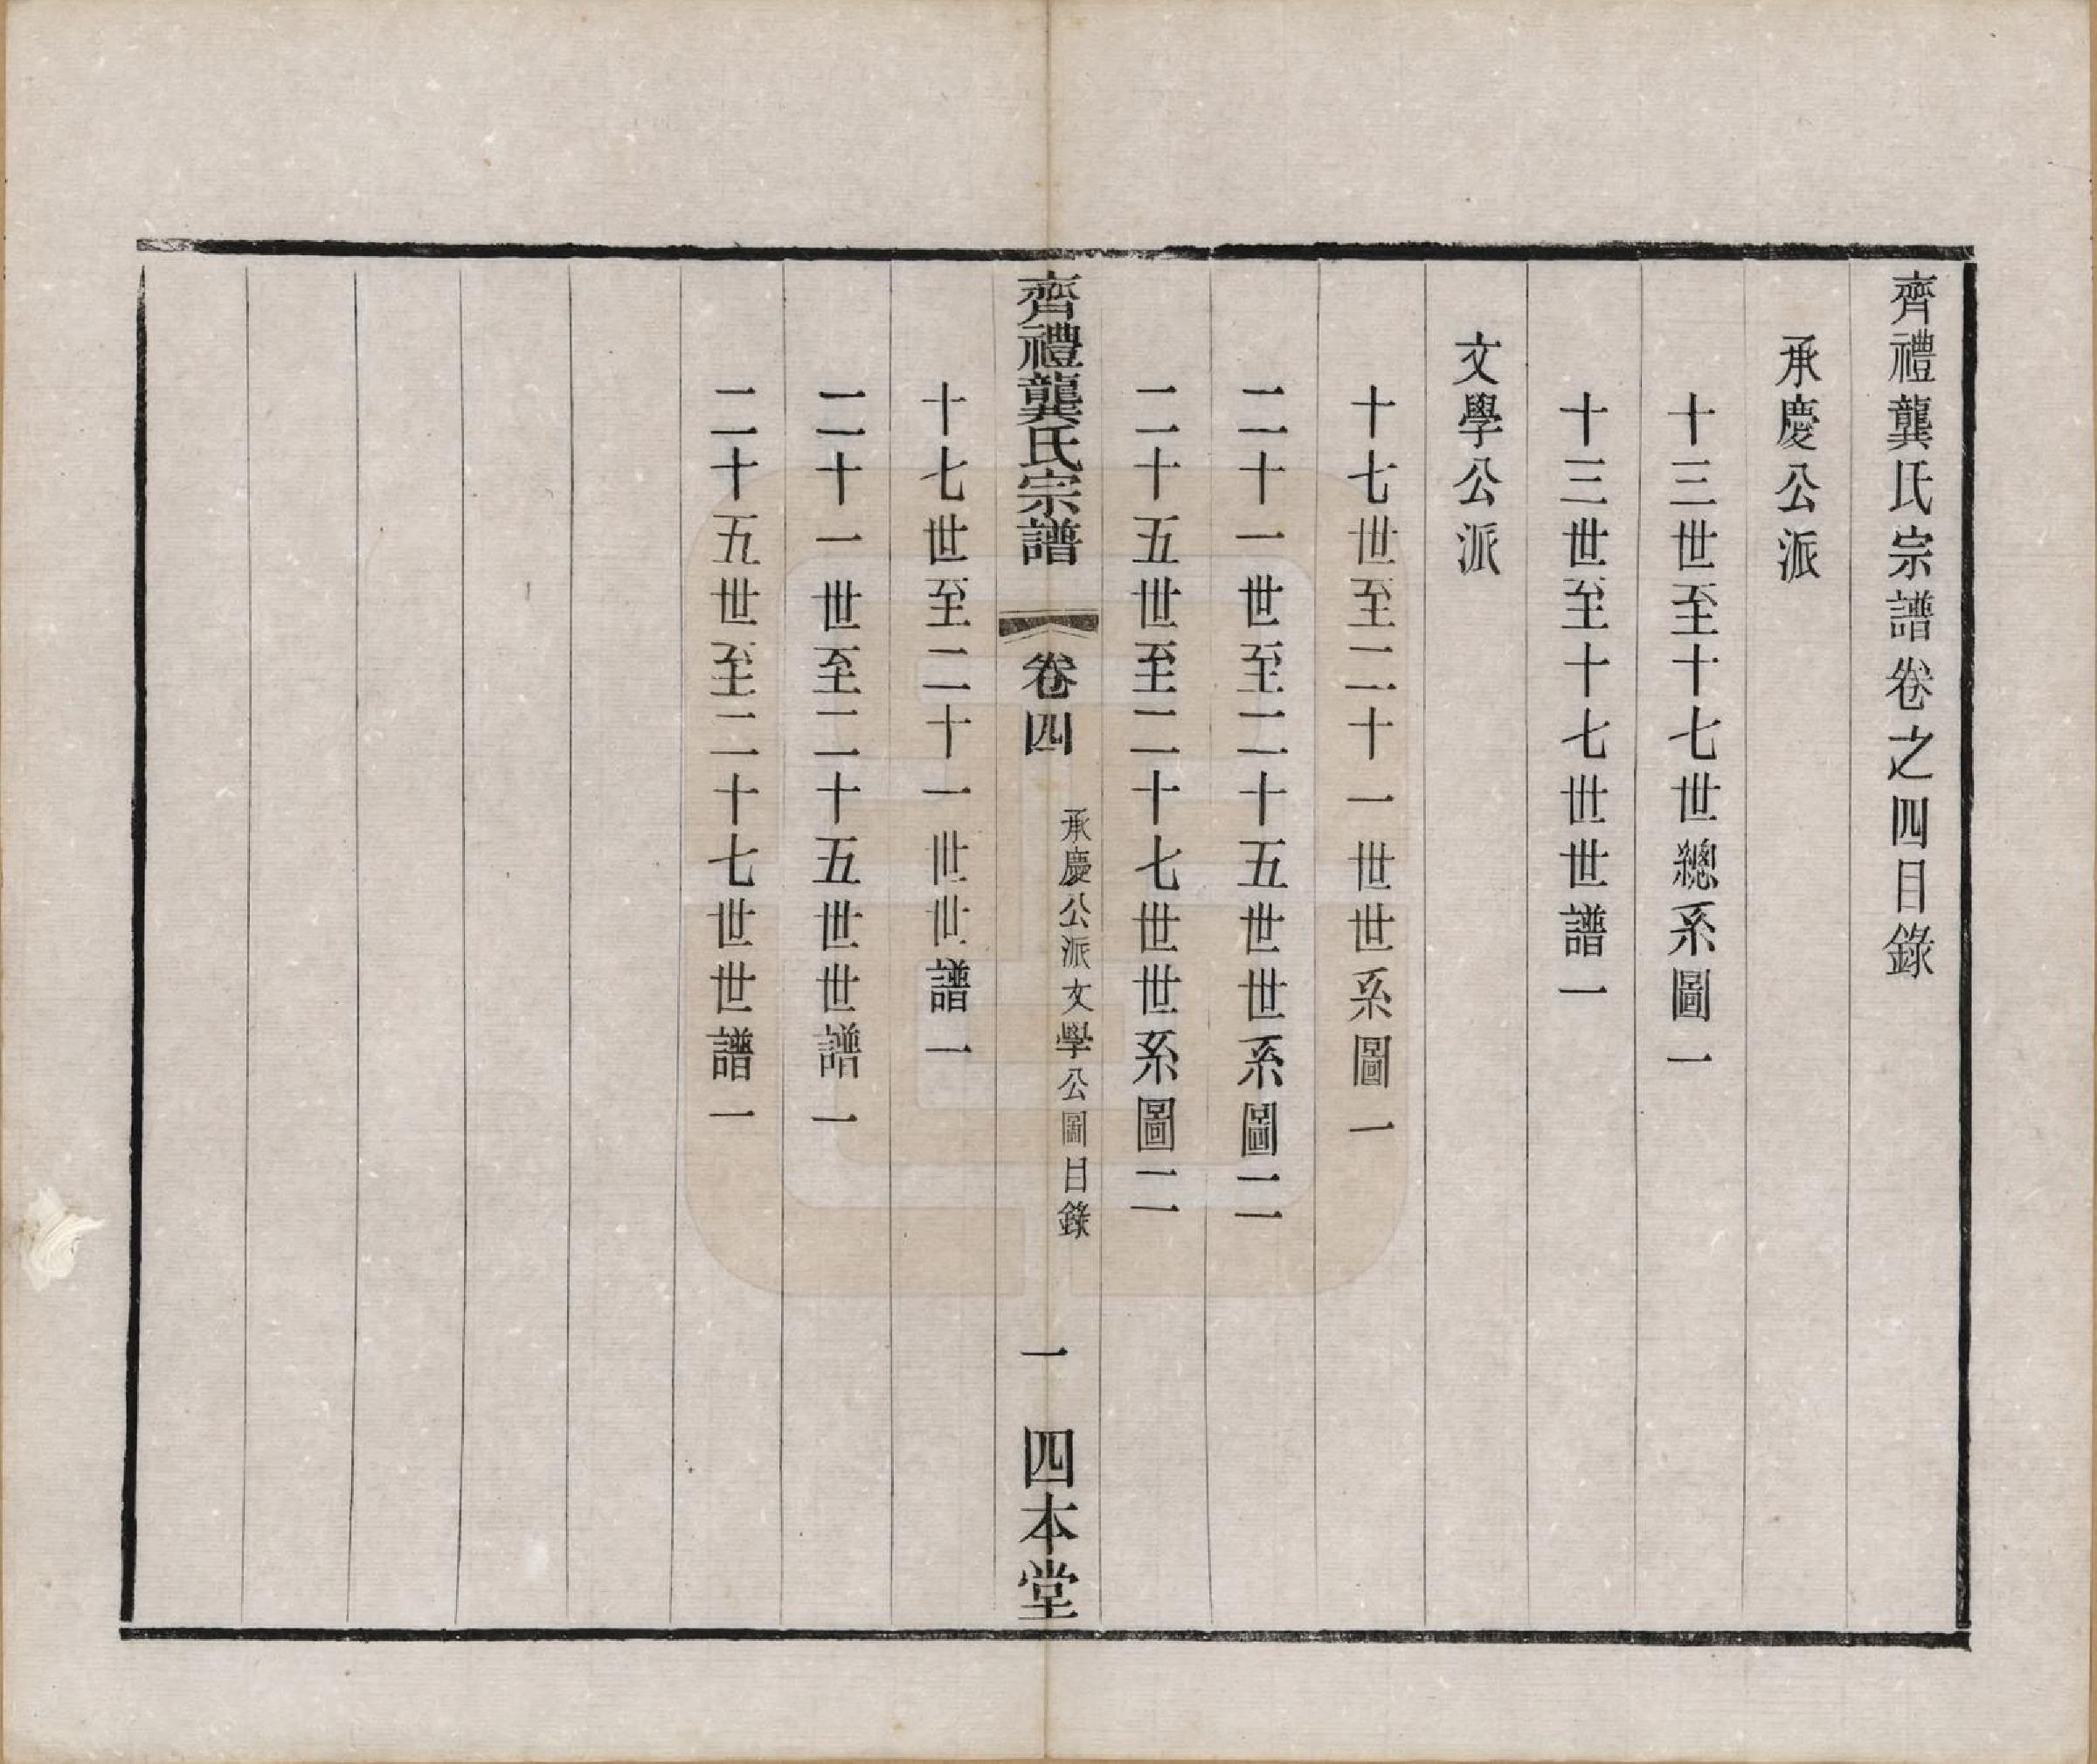 齊禮龔氏宗譜卷之四目錄
承慶公派
十三世至十七世總系圖一
十三世至十七世世譜一
文學公派
十七世至二十一世世系圖一
二十一世至二十五世世系圖二
二十五世至二十七世世系圖二
齊禮龔氏宗譜 卷四 承慶公派文學公圖目錄 一 四本堂
十七世至二十一世世譜一
二十一世至二十五世世譜一
二十五世至二十七世世譜一